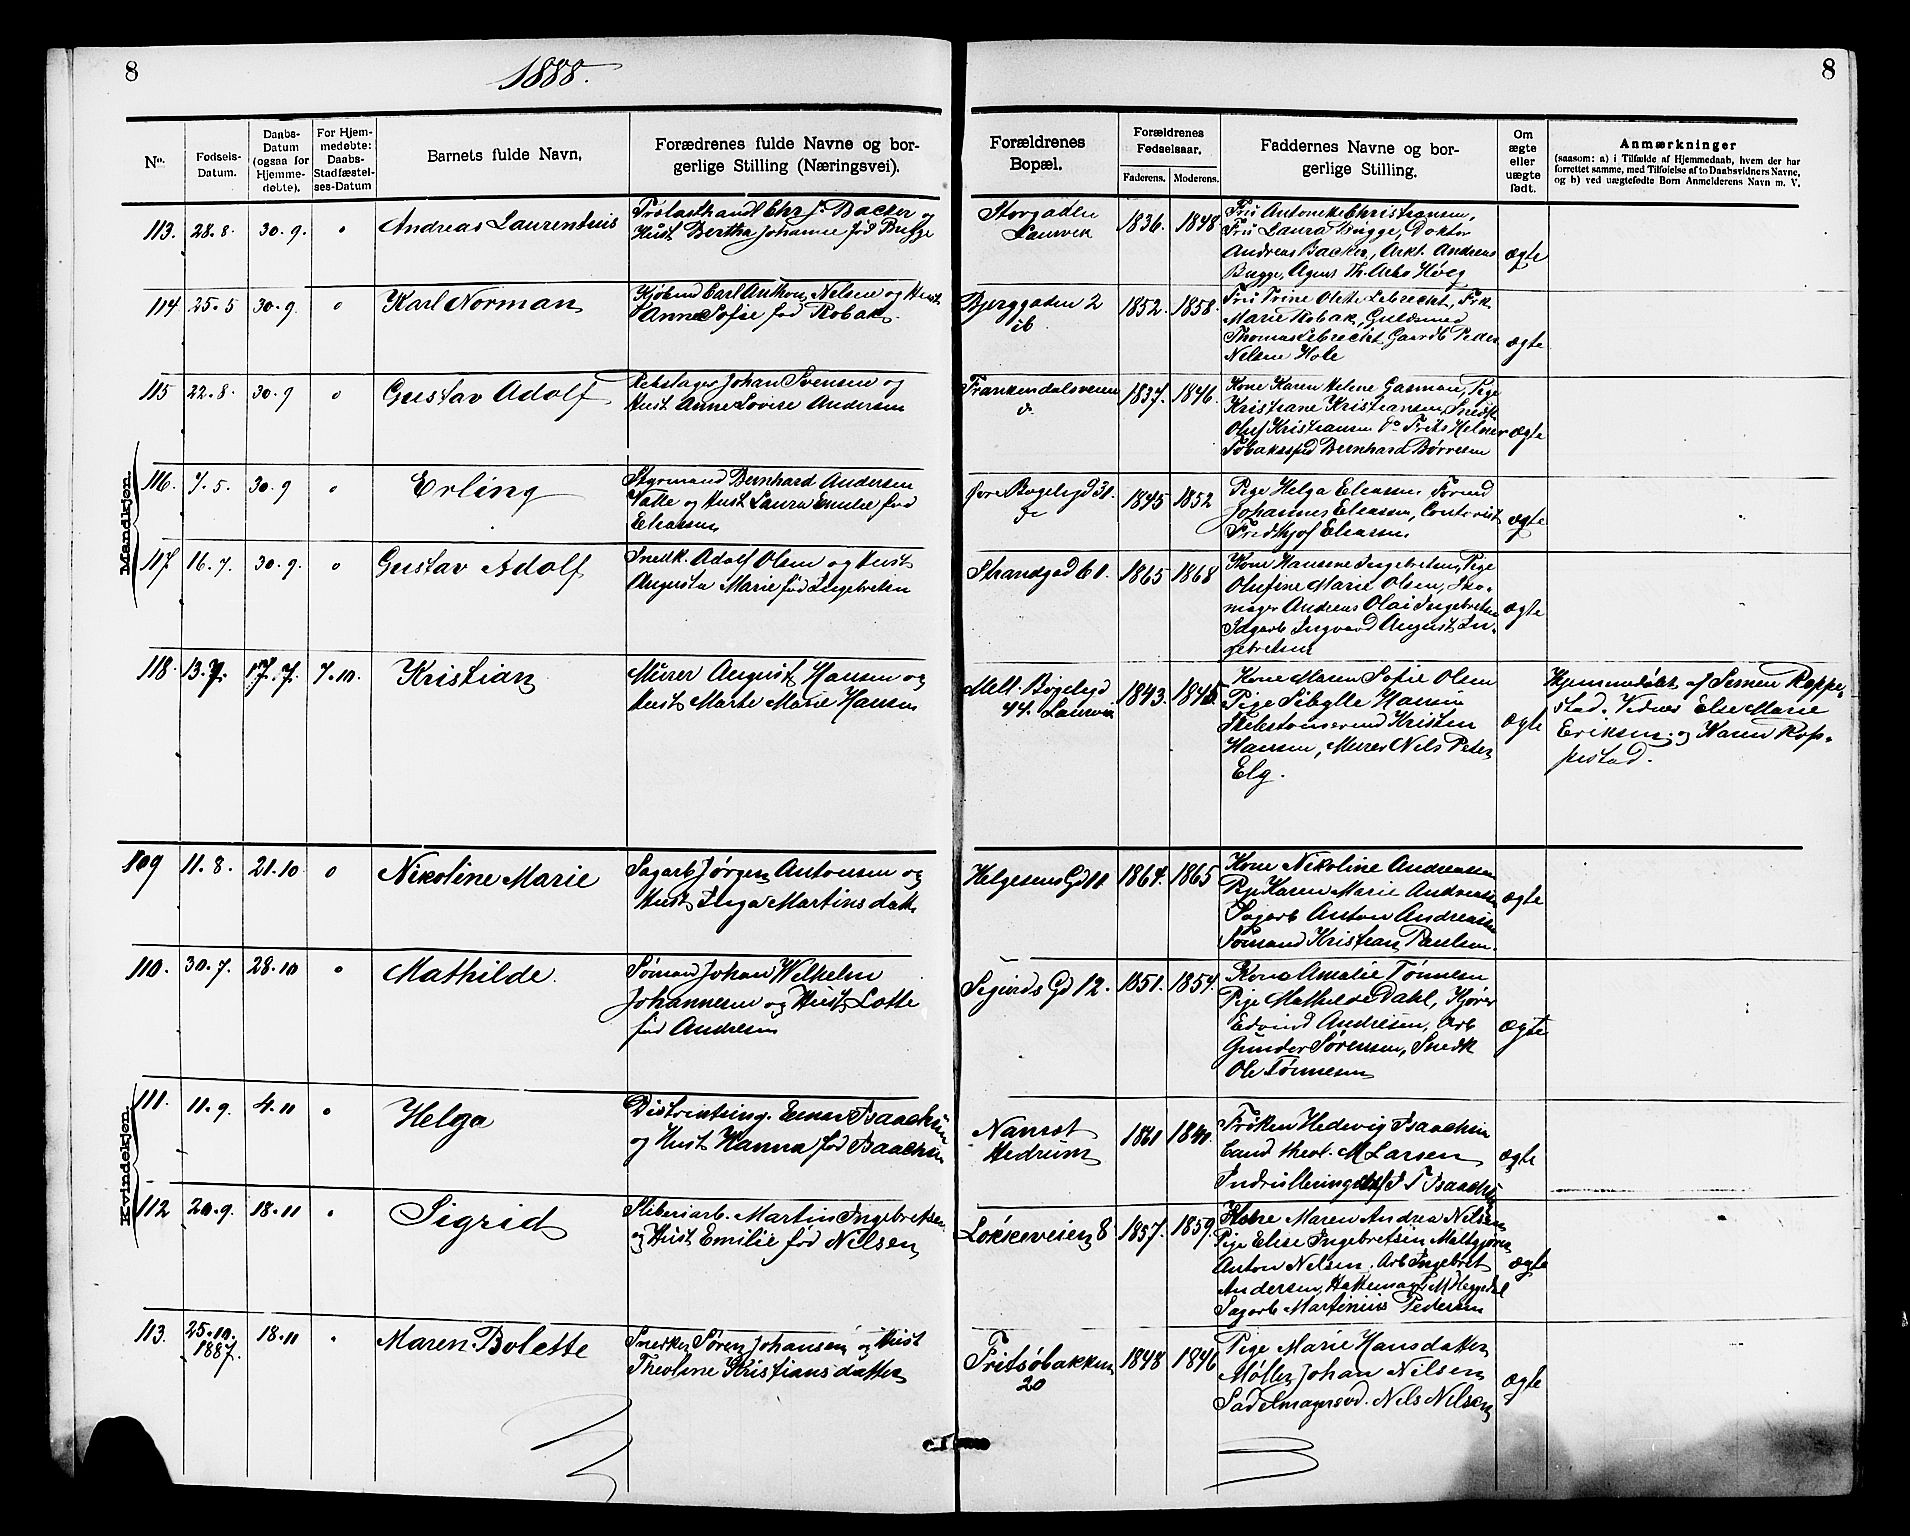 8
1888.
8
No.
Fødsels-
Datum.
Daabs-
Datum
(ogsaa for
Hjemme-
døbte).
For Hjem-
medøbte:
Daabs-
Stadfæstel-
ses-Datum
Barnets fulde Navn.
Forældrenes fulde Navne og bor-
gerlige Stilling (Næringsvei).
Forældrenes
Bopæl.
Forældrenes
Fødselsaar.
Faderens.
Moderens.
Faddernes Navne og bor-
gerlige Stilling.
Om
ægte
eller
uægte
født.
Anmærkninger
(saasom: a) i Tilfælde af Hjemmedaab, hvem der har
forrettet samme, med Tilføielse af to Daabsvidners Navne,
og b) ved uægtefødte Børn Anmelderens Navn m. V.
Mandkjøn.
113. 28.8. 30.9. 0 Andreas Laurentius
Chr J. Backer og
Hust Bertha Johanne fød Bugge
Storgaden
Laurvik
1836. 1848
Fru Christiansen,
Fru Laura Bugge, Doktor
Andreas Backer, Arkt. Andreas
Bugge, Agent Th. Arbo Høeg
ægte
114 25.5 30.9. 0 Karl Norman
Kjøbmd Carl Anthon Nelsen og Hust
Anne Sofie fød Robak
Bjerggaden 2
ib
1852. 1858.
Fru Trine Olette Lebrecht, Frk
Marie Robak, Guldsmed
Thomas Lebrecht, Gaardb Peder
Nelsen Hole
ægte
115 22.8. 30.9 0 Gustav Adolf
Rebslager Johan Svensen og
Hust Anne Lovise Andersen
Frankendalsveien
1837. 1846.
Kone Karen Helene Gasman, Pige
Kristiane Kristiansen, Snedk
Oluf Kristiansen do Frits Helner
Tobaksspd Bernhard Børresen
ægte
116. 7.5. 30.9 0 Erling
Styrmand Bernhard Andersen
Valle og Hust Laura Emilie fød
Eliassen
øvre Bøgeligd 31.
1845 1852
Pige Helga Eliassen, Formd
Johannes Eliassen, Contorist
Fredthjof Eliassen
ægte
117. 16.7. 30.9. 0 Gustav Adolf
Snedk. Adolf Olsen og Hust
Augusta Marie fød Ingebretsen
Strandgad 61.
1865 1868
Kone Hansine Ingebretsen, Pige
Olufine Marie Olsen, Sko-
mager Andreas Olai Ingebretsen
Ingvard August In-
gebretsen
ægte
118. 13.7. 17.7. 7.10. Kristian
Murer August Hansen og
Hust Marte Marie Hansen
Mell. Bøgeligd
44. Laurvik
1843. 1845.
Kone Maren Sofie Olsen
Pige Sibylle Hansen
Kristen
Hansen, Murer Nils Peter
Elg.
ægte
Hjemmedøbt af Simen Roppe-
stad. Vidner Else Marie
Eriksen og Karen Rop-
pestad.
Kvindekjøn.
109 11.8. 21.10 0 Nikoline Marie
Sagarb Jørgen Antonsen og
Hust Inga Martinsdatt.
Helgesens Gd 11.
1864. 1865
Kone Nikoline Andreassen
Pige Karen Marie Andreassen
Sagarb Anton Andreassen
Sømand Kristian Paulsen.
ægte
110. 30.7. 28.10 0 Mathilde.
Sømand Johan Wilhelm
Johannesen og Hust Lotte
fød Andresen
Sigurds Gd 12.
1851. 1854.
Kone Amalie Tønnesen
Pige Mathilde Dahl, Kjører
Edvind Andresen, Arb
Gunder Sørensen, Snedk
Ole Tønnesen
ægte
111. 11.9. 4.11 0 Helga
Distriktsing. Einar Isaachsen
og Hust Hanna fød Isaachsen
Nanset
Hedrum
1861
Frøken Hedevig Isaachsen
Cand theol. M Larsen
Indrulleringschef J T Isaachsen
ægte
112 20.9. 18.11 0 Sigrid
Sliberiarb. Martin Ingebretsen
og Hust Emilie fød Nilsen
Løkkeveien 8
1857. 1859.
Kone Maren Andrea Nilsen
Pige Elise Ingebretsen, Maltgjører
Anton Nilsen. Arb Ingebret
Andersen, Hattemager M Heggedal
Sagarb Martinius Pedersen
ægte
113. 25.10. 18.11 0 Maren Bolette
1887.
Snedker Søren Johansen og Hust
Theoline Kristiansdatter
Fritsøbakken
20
1848 1846
Pige Marie Hansdatter
Møller Johan Nilsen
Sadelmagersvd. Nils Nilsen
ægte